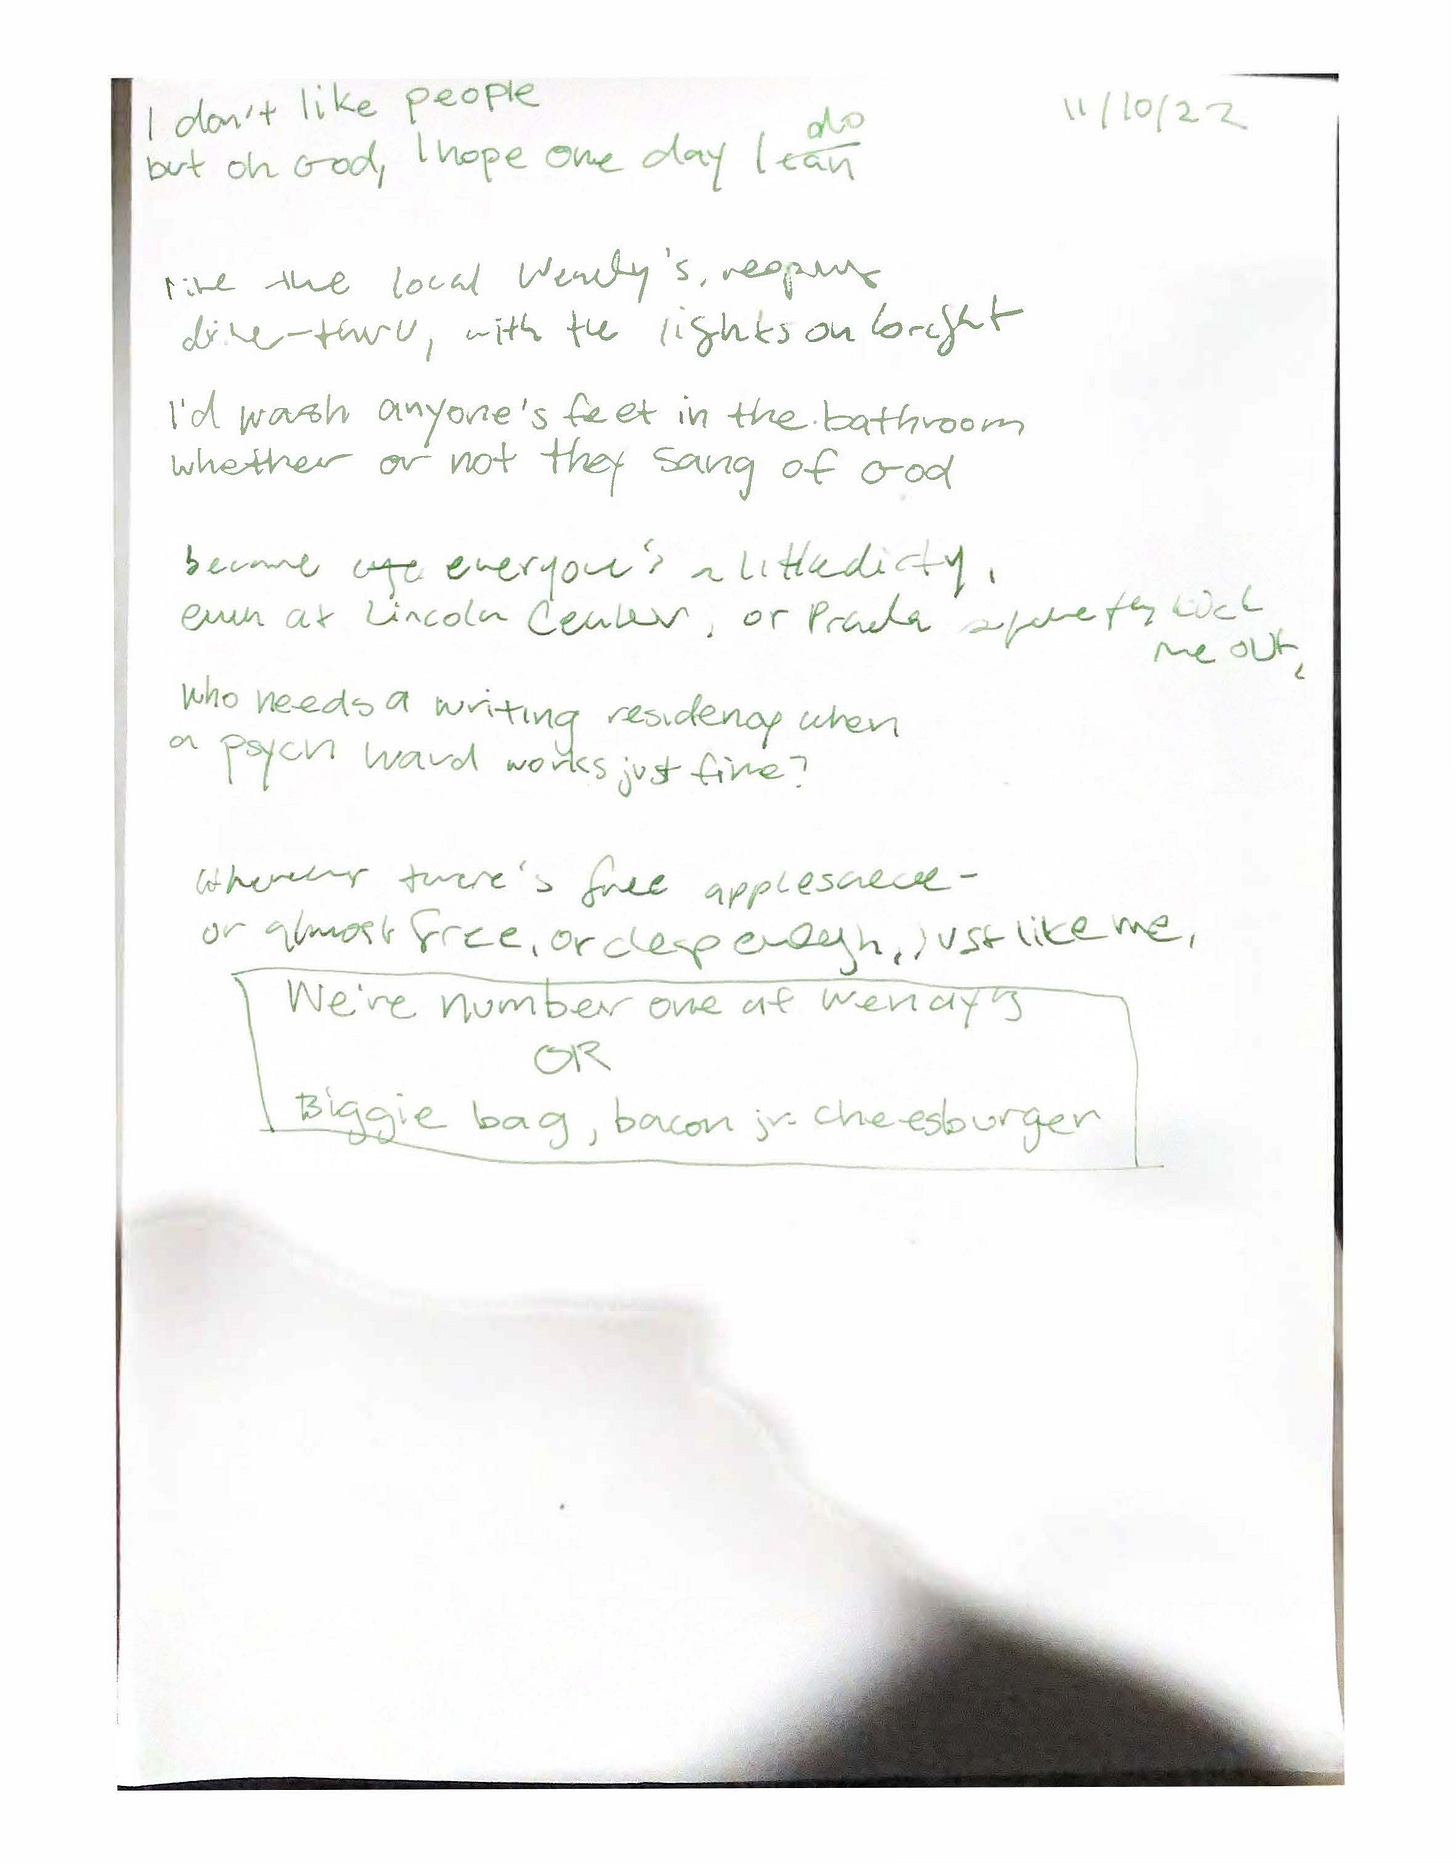 11/10/22
I don't like people
but oh God, I hope one day I can do
like the local Wendy's,
drive-thru, with the lights on bright
I'd wash anyone's feet in the bathroom
whether or not they sang of God
because everyone's a little dirty,
even at Lincoln Center, or Prada kick
me out,
who needs a writing residency when
a psych ward works just fine?
Wherever there's free applesauce-
or almost free, or cheap enough, just like me,
We're number one at Wendy's
OR
Biggie bag, bacon jr. cheesburger